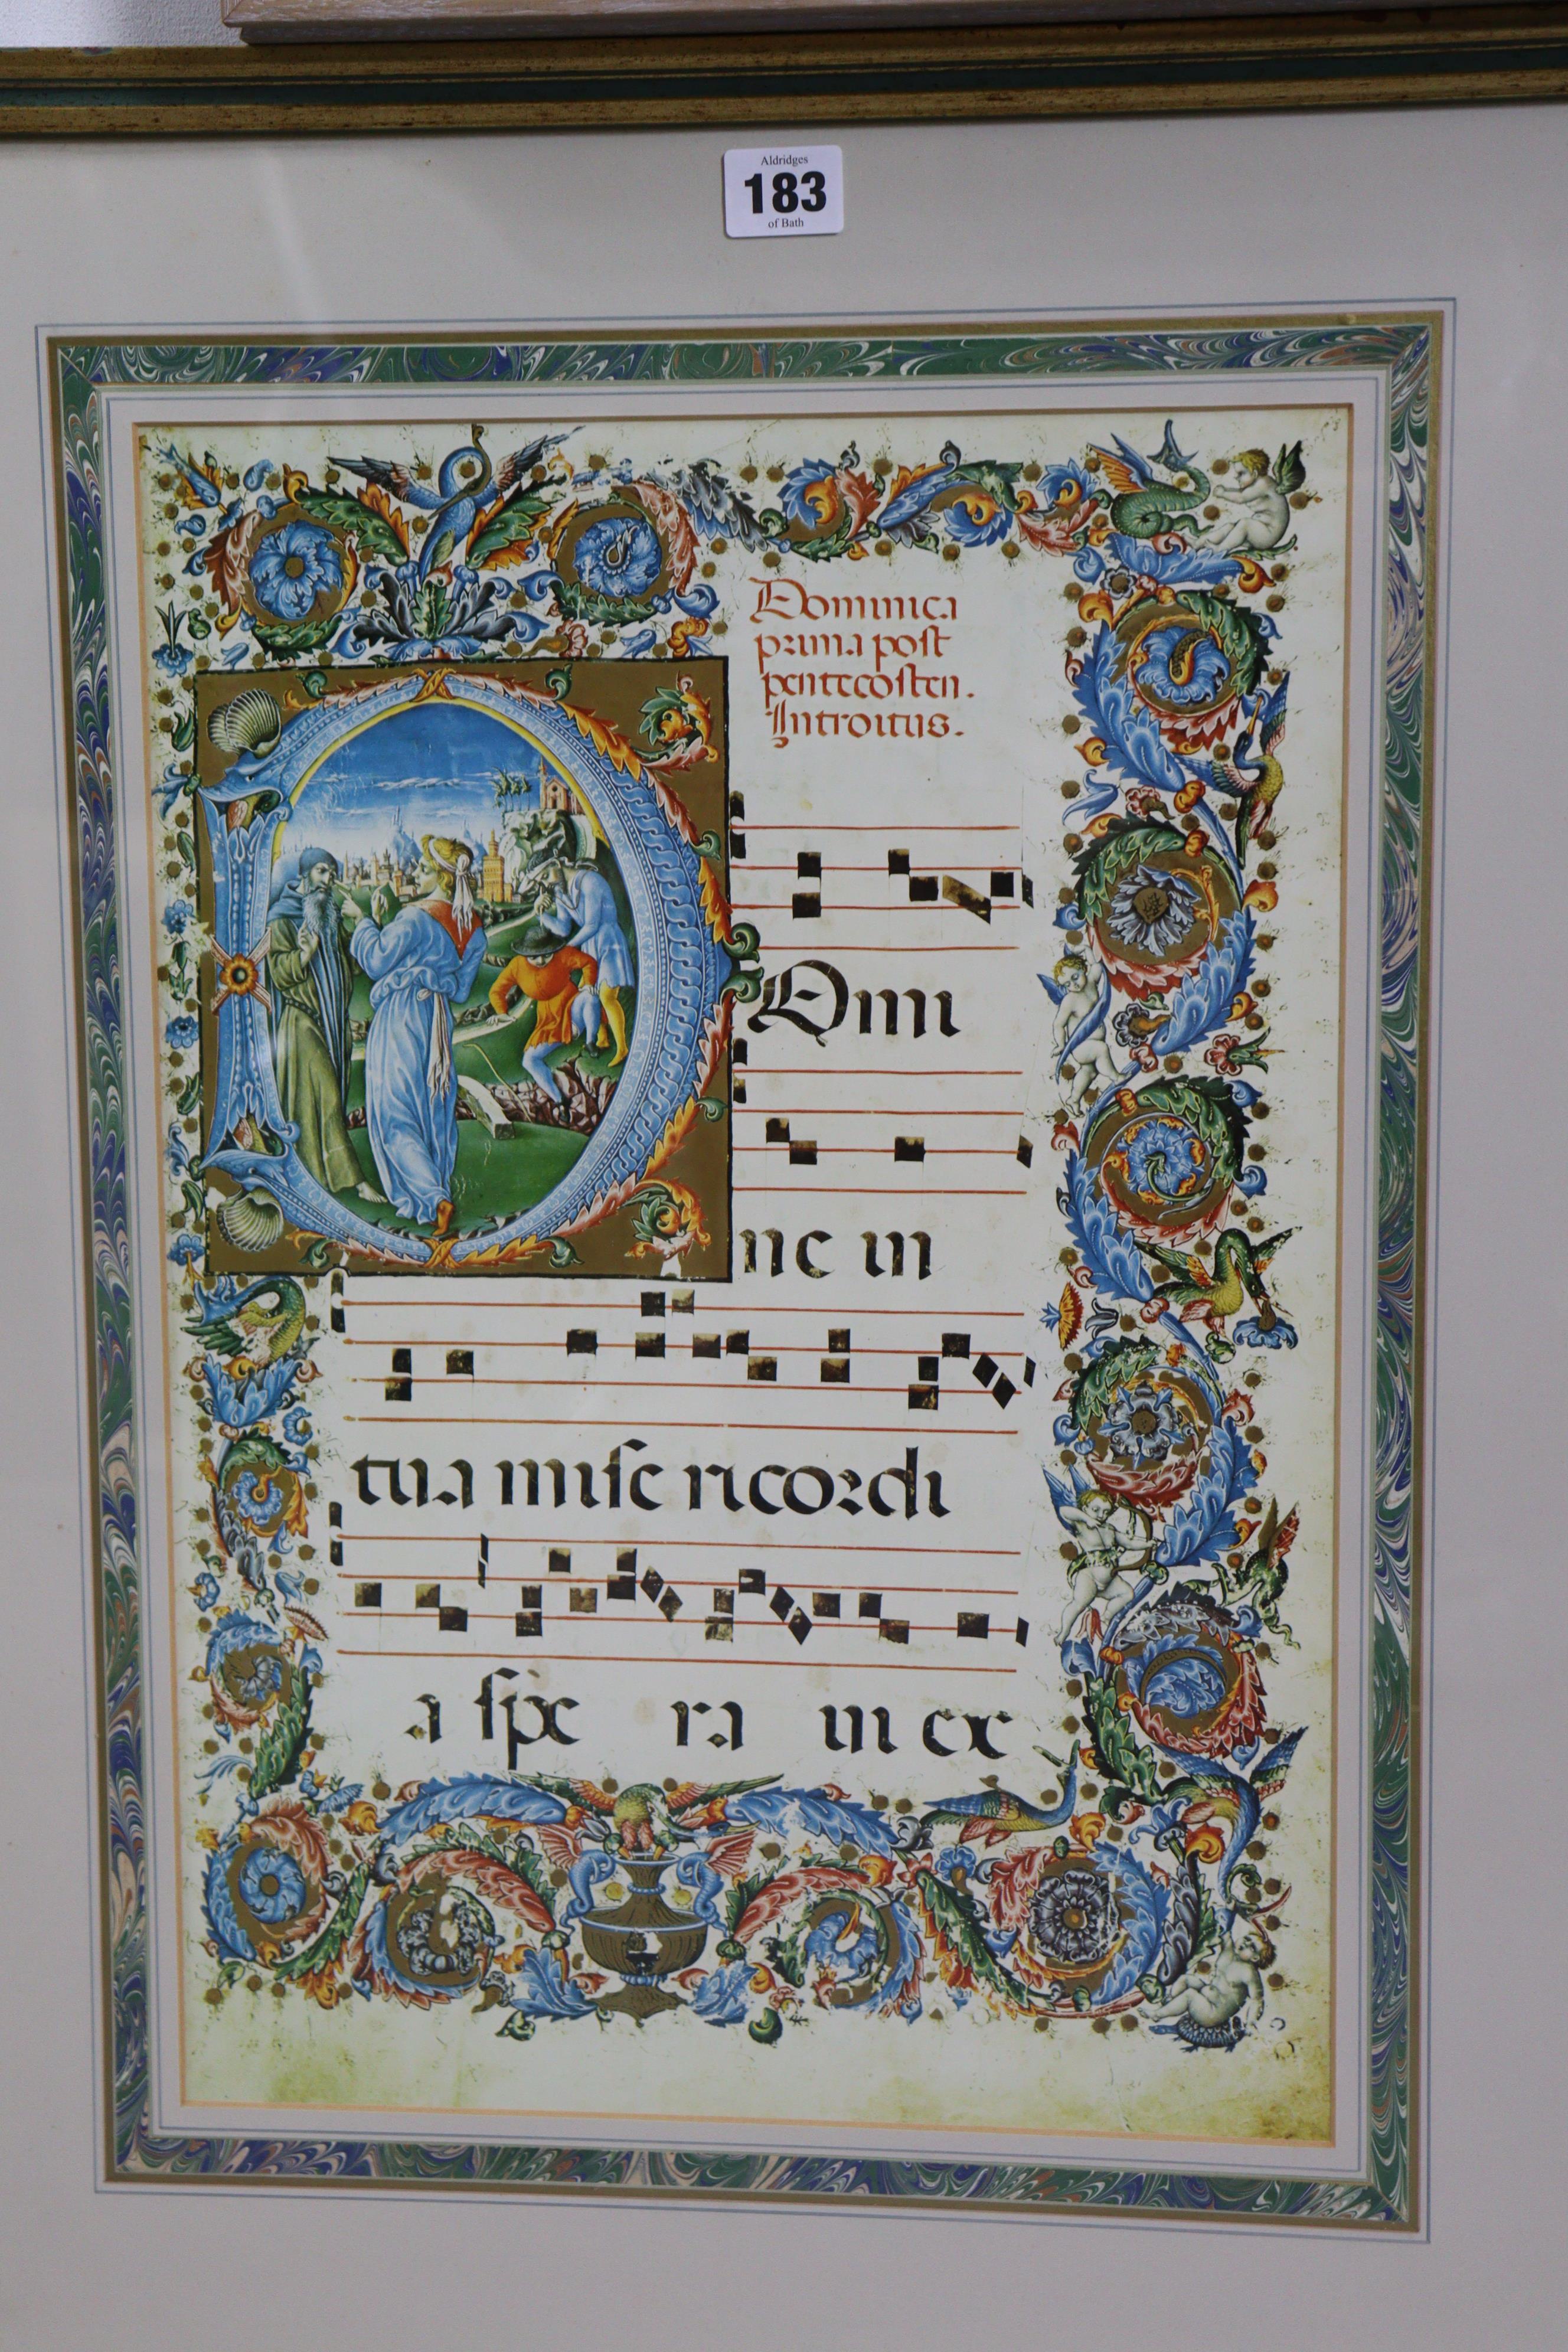 Aldridges
183
of Bath
Dominica
prima post
pentecosten.
Introitus.
Domi
ne in
tua mise ricordi
a spe ra ui ex